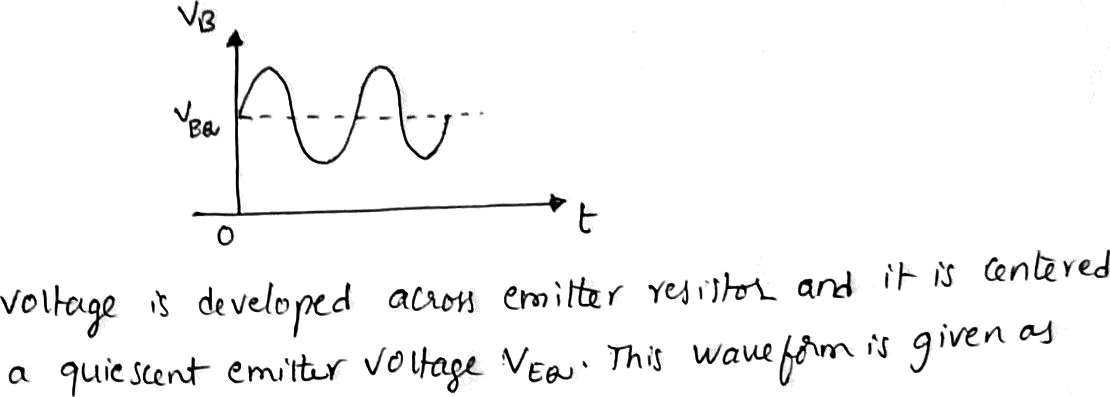 VB
VBQ
0
t
voltage is developed across emitter resistor and it is centered
a quiescent emitter voltage VEQ. This waveform is given as